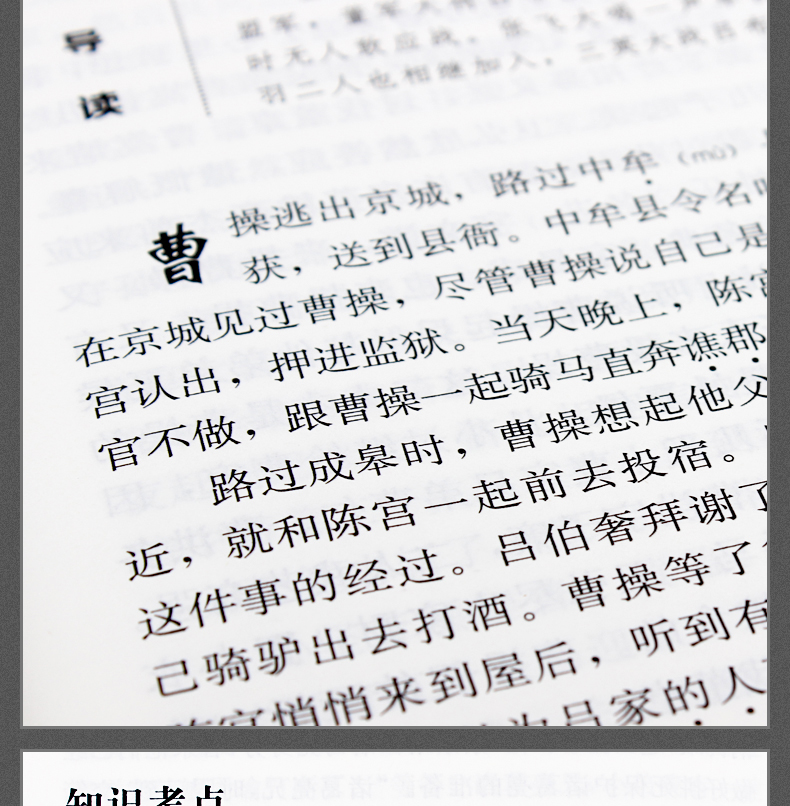 导
读
盟军，董军大将
时无人敢应战。张飞大喝一声
羽二人也相继加入，三英大战吕布
曹操逃出京城，路过中牟（mù）
获，送到县衙。中牟县令名叫
在京城见过曹操，尽管曹操说自己是
宫认出，押进监狱。当天晚上，陈宫
官不做，跟曹操一起骑马直奔谯郡
路过成皋时，曹操想起他父
近，就和陈宫一起前去投宿。
这件事的经过。吕伯奢拜谢了
己骑驴出去打酒。曹操等了
陈宫悄悄来到屋后，听到有
为吕家的人
知识考点